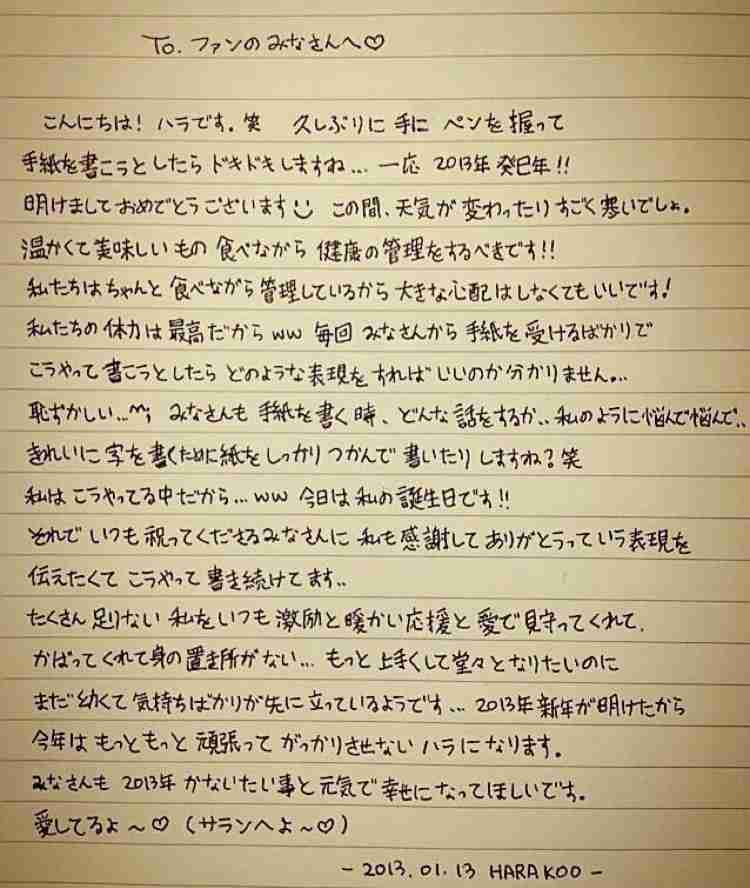 To. ファンのみなさんへ♡
こんにちは! ハラです。笑 久しぶりに 手に ペンを 握って
手紙を書こうとしたら ドキドキしますね... 一応 2013年 癸巳年!!
明けましておめでとうございます この間、天気が 変わったり すごく 寒いでしょ。
温かくて 美味しい もの 食べながら 健康の管理をするべきです!!
私たちは ちゃんと 食べながら 管理しているから 大きな心配はしなくてもいいです!
私たちの 体力は 最高だから ww 毎回 みなさんから 手紙を 受けるばかりで
こうやって 書こうとしたら どのような表現を すれば いいのか 分かりません...
恥ずかしい..^^; みなさんも 手紙を書く時、どんな話をするか.. 私のように 悩んで悩んで..
きれいに 字を 書くために紙を しっかり つかんで 書いたり しますね? 笑
私は こうやってる中だから... ww 今日は 私の誕生日です!!
それで いつも 祝ってくださるみなさんに 私も 感謝して ありがとうっていう表現を
伝えたくて こうやって 書き続けてます..
たくさん 足りない 私を いつも 激励と 暖かい 応援と 愛で見守ってくれて、
かばってくれて 身の置き所がない... もっと 上手くして 堂々と なりたいのに
まだ 幼くて 気持ちばかりが 先に 立っているようです... 2013年 新年が 明けたから
今年は もっともっと 頑張って がっかりさせない ハラになります。
みなさんも 2013年 かないたい事と 元気で 幸せになってほしいです。
愛してるよ〜♡ (サランヘよ〜♡)
- 2013.01.13 HARA KOO -